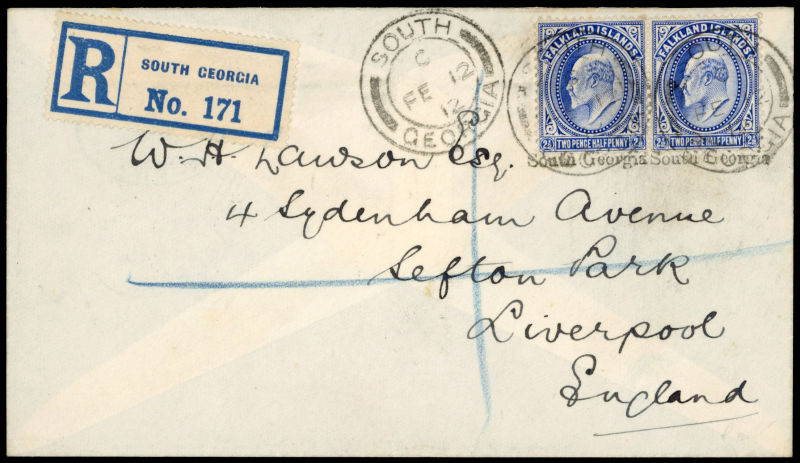 R
SOUTH GEORGIA
No. 171
SOUTH
C
FE 12
12
GEORGIA
FALKLAND ISLANDS
TWO PENCE HALFPENNY
2½ 2½
FALKLAND ISLANDS
TWO PENCE HALFPENNY
2½ 2½
South Georgia South Georgia
W. H. Lawson Esq.
4 Sydenham Avenue
Sefton Park
Liverpool
England